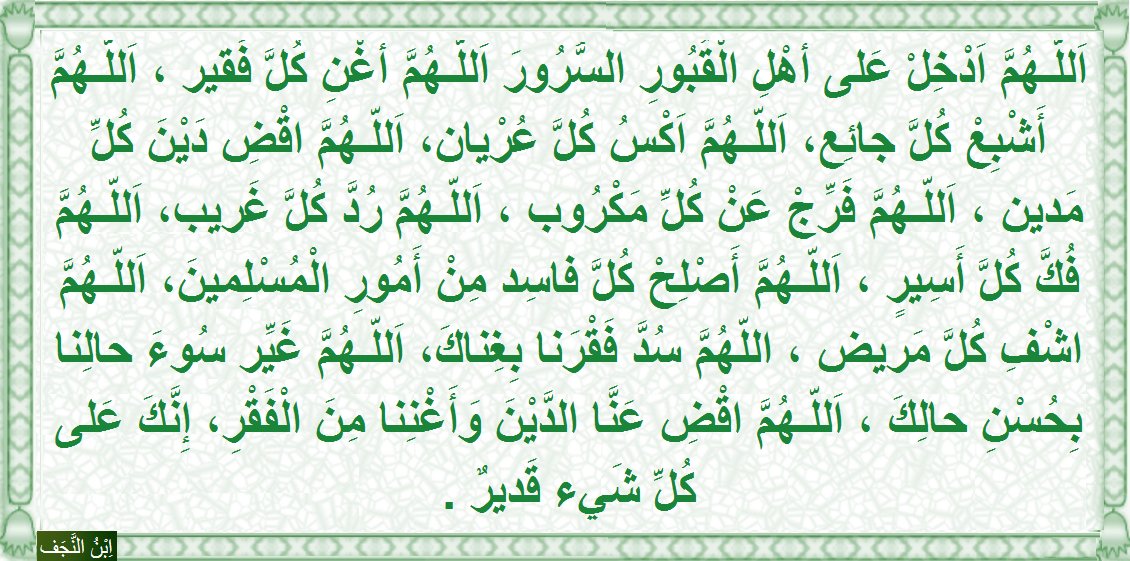 اَللّـهُمَّ اَدْخِلْ عَلى أهْلِ الْقُبُورِ السَّرُورَ اَللّـهُمَّ أغْنِ كُلَّ فَقير ، اَللّـهُمَّ
أَشْبِعْ كُلَّ جائِع، اَللّـهُمَّ اَكْسُ كُلَّ عُرْيان، اَللّـهُمَّ اقْضِ دَيْنَ كُلِّ
مَدين ، اَللّـهُمَّ فَرِّجْ عَنْ كُلِّ مَكْرُوب ، اَللّـهُمَّ رُدَّ كُلَّ غَريب، اَللّـهُمَّ
فُكَّ كُلَّ أَسِيرٍ ، اَللّـهُمَّ أَصْلِحْ كُلَّ فاسِد مِنْ أَمُورِ الْمُسْلِمينَ، اَللّـهُمَّ
اشْفِ كُلَّ مَريض ، اللّهُمَّ سُدَّ فَقْرَنا بِغِناكَ، اَللّـهُمَّ غَيِّر سُوءَ حالِنا
بِحُسْنِ حالِكَ ، اَللّـهُمَّ اقْضِ عَنَّا الدَّيْنَ وَأَغْنِنا مِنَ الْفَقْرِ، إِنَّكَ عَلى
كُلِّ شَيء قَديرٌ .
اِبْنُ النَّجَف